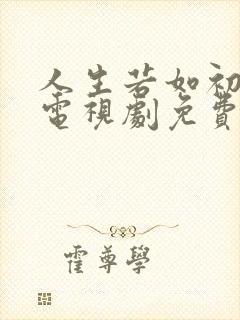 人生若如初
電視劇免費
霍尊學